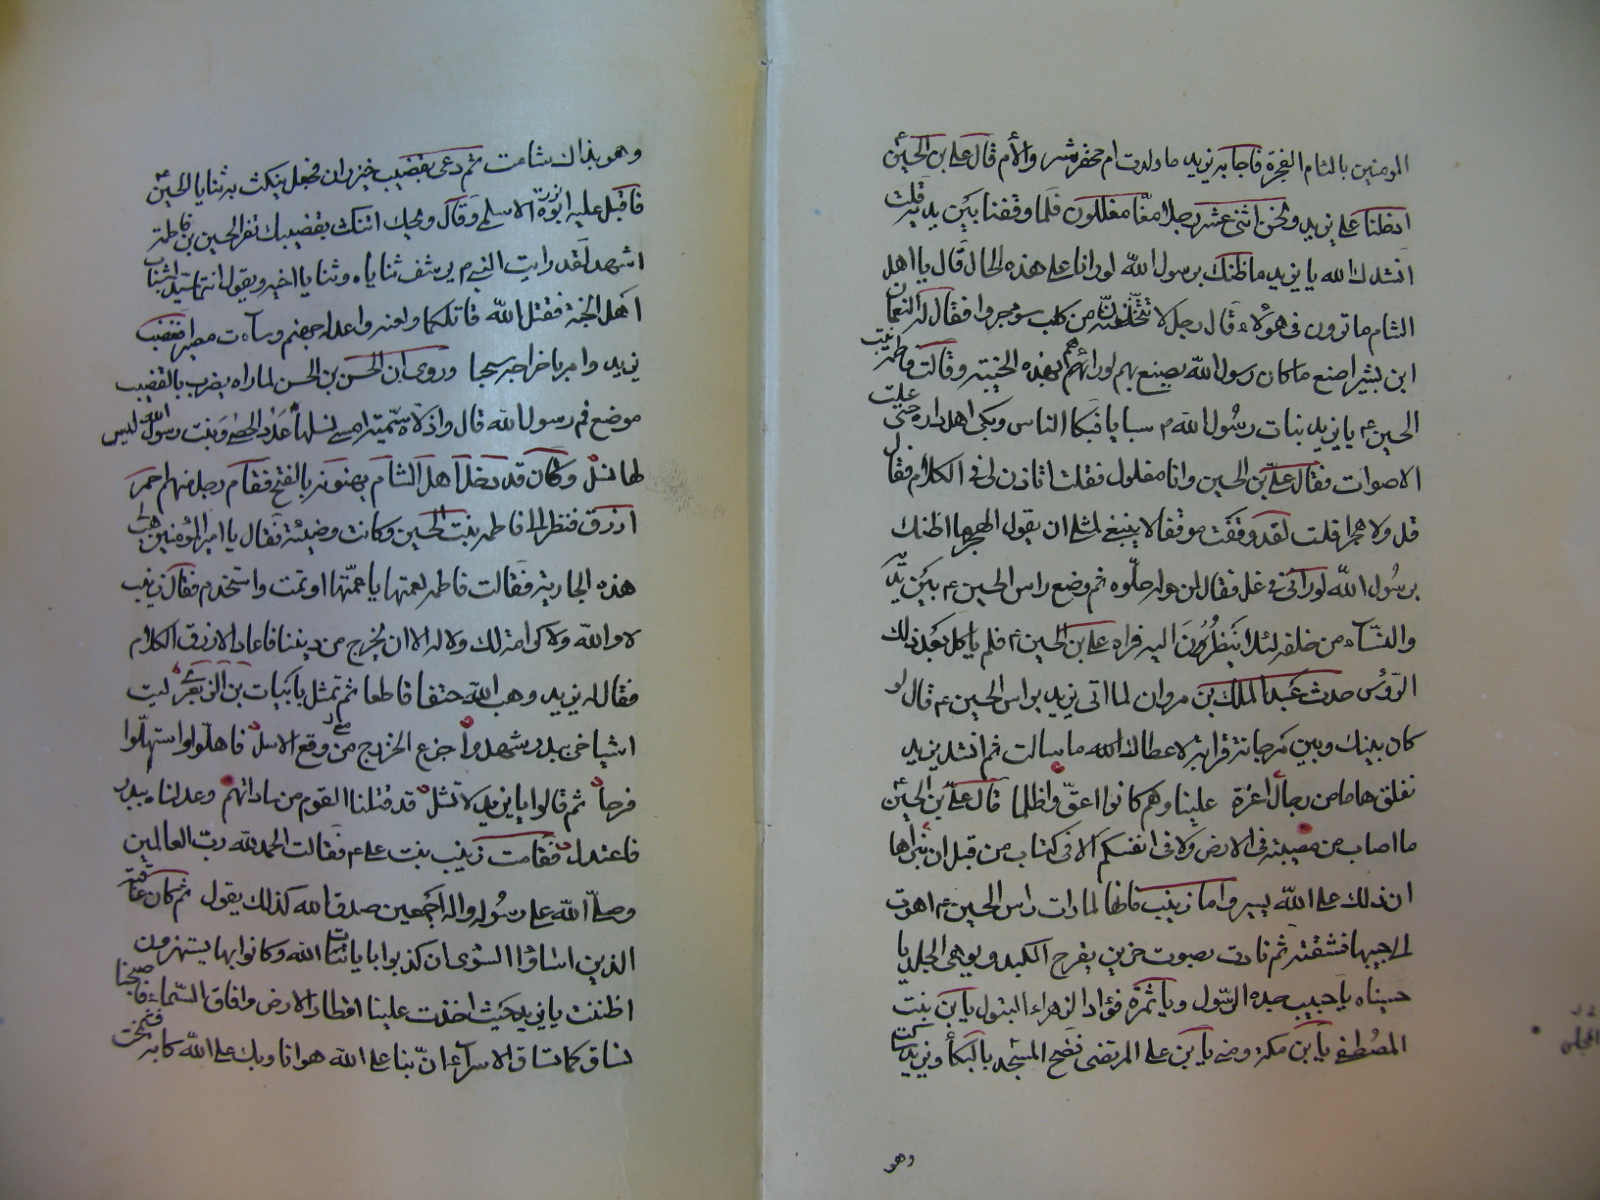 المومنين بالشام الفجرة فاجابه يزيد ما ولدت ام محفر شر والأم قال علي بن الحين ع
ادخلنا على يزيد ونحن اثنى عشر رجلا معا مغللون فلما وقفنا بين يديه قلت
انشدك الله يا يزيد ما ظنك برسول الله لو رانا على هذه الحال قال يا اهل
الشام ما ترون فى هؤلاء قال رجل لا تتخذن من كلب سوء جروا فقال له النعمان
ابن بشير اصنع ما كان رسول الله يصنع بهم لو رائهم بهذه الخيبة وقالت فاطمة بنت
الحين ع يا يزيد بنات رسول الله م سبايا فبكا الناس وبكى اهل داره حتى علت
الاصوات فقال علي بن الحين وانا مغلول فقلت اتاذن لى فى الكلام فقال
قل ولا هجرا قلت لقد وقفت موقفا لا ينبغ لمثلى ان يقول الهجر ما اظنك
برسول الله لو رآنى فى غل فقال لمن حوله حلوه ثم وضع راس الحين ع بين يديه
والنسآء من خلفه لئلا ينظرون اليه فراه علي بن الحين ع فلم ياكل بعد ذلك
الرؤس حدث عبد الملك بن مروان لما اتى يزيد براس الحين ع قال لو
كان بينك وبين مرجانة قرابة لاعطاك الله ما سالت ثم انشد يزيد
نفلق هاما من رجال اعزة علينا وهم كانوا اعق واظلما قال علي بن الحين ع
ما اصاب من مصيبة فى الارض ولا فى انفسكم الا فى كتاب من قبل ان نبراها
ان ذلك على الله يسير واما زينب فانها لما رات راس الحين ع اهوت
الى جيبها فشقته ثم نادت بصوت حزين يقرح الكبد ويوهى الجلد يا
حسيناه يا حبيب جده الرسول ويا ثمرة فؤاد الزهراء البتول يا بن بنت
المصطفى يا بن مكة ومنى يا بن على المرتضى فضج المسجد بالبكآ ويزيد ساكت
وهو
وهو بذاك شامت ثم دعى بقضيب خيزران فجعل ينكت به ثنايا الحين ع
فاقبل عليه ابو برزة الاسلمى وقال ويحك اتنكت بقضيبك ثغر الحين بن فاطمة
اشهد لقد رايت النبى م يرشف ثناياه وثنايا اخيه ويقول انتما سيدا شباب
اهل الجنة فقتل الله قاتلكما ولعنه واعد له جهنم وسآءت مصيرا فغضب
يزيد وامر باخراجه سحبا وروى ان الحسن بن الحسن لما راه يضرب بالقضيب
موضع فم رسول الله قال واذلاه سمية امسى نسلها عدد الحصى وبنت رسول الله ليس
لها نسل وكان قد دخل اهل الشام يهنونه بالفتح فقام رجل منهم احمر
ازرق فنظر الى فاطمه بنت الحين وكانت وضيئة فقال يا امير المؤمنين هب لى
هذه الجارية فقالت فاطمه لعمتها يا عمتها اوتمت واستخدم فقال زينب
لا والله ولا كرامة لك ولا له الا ان يخرج من ديننا فاعاد الازرق الكلام
فقال له يزيد وهب الله حتفا قاطعا ثم تمثل بابيات بن الزبعرى ليت
اشياخى ببدر شهدوا جزع الخزرج من وقع الاسل فاهلوا واستهلوا
فرحا ثم قالوا يا يزيد لا تشل قد قتلنا القوم من ساداتهم وعدلناه ببدر
فاعتدل فقامت زينب بنت على ع فقالت الحمد لله رب العالمين
وصلى الله على رسوله واله اجمعين صدق الله كذلك يقول ثم كان عاقبة
الذين اساؤا السؤى ان كذبوا بايات الله وكانوا بها يستهزون
اظننت يا يزيد حيث اخذت علينا اقطار الارض وافاق السماء فاصبحنا
نساق كما تساق الاسرآء ان بنا على الله هوانا وبك على الله كابه فشمخت